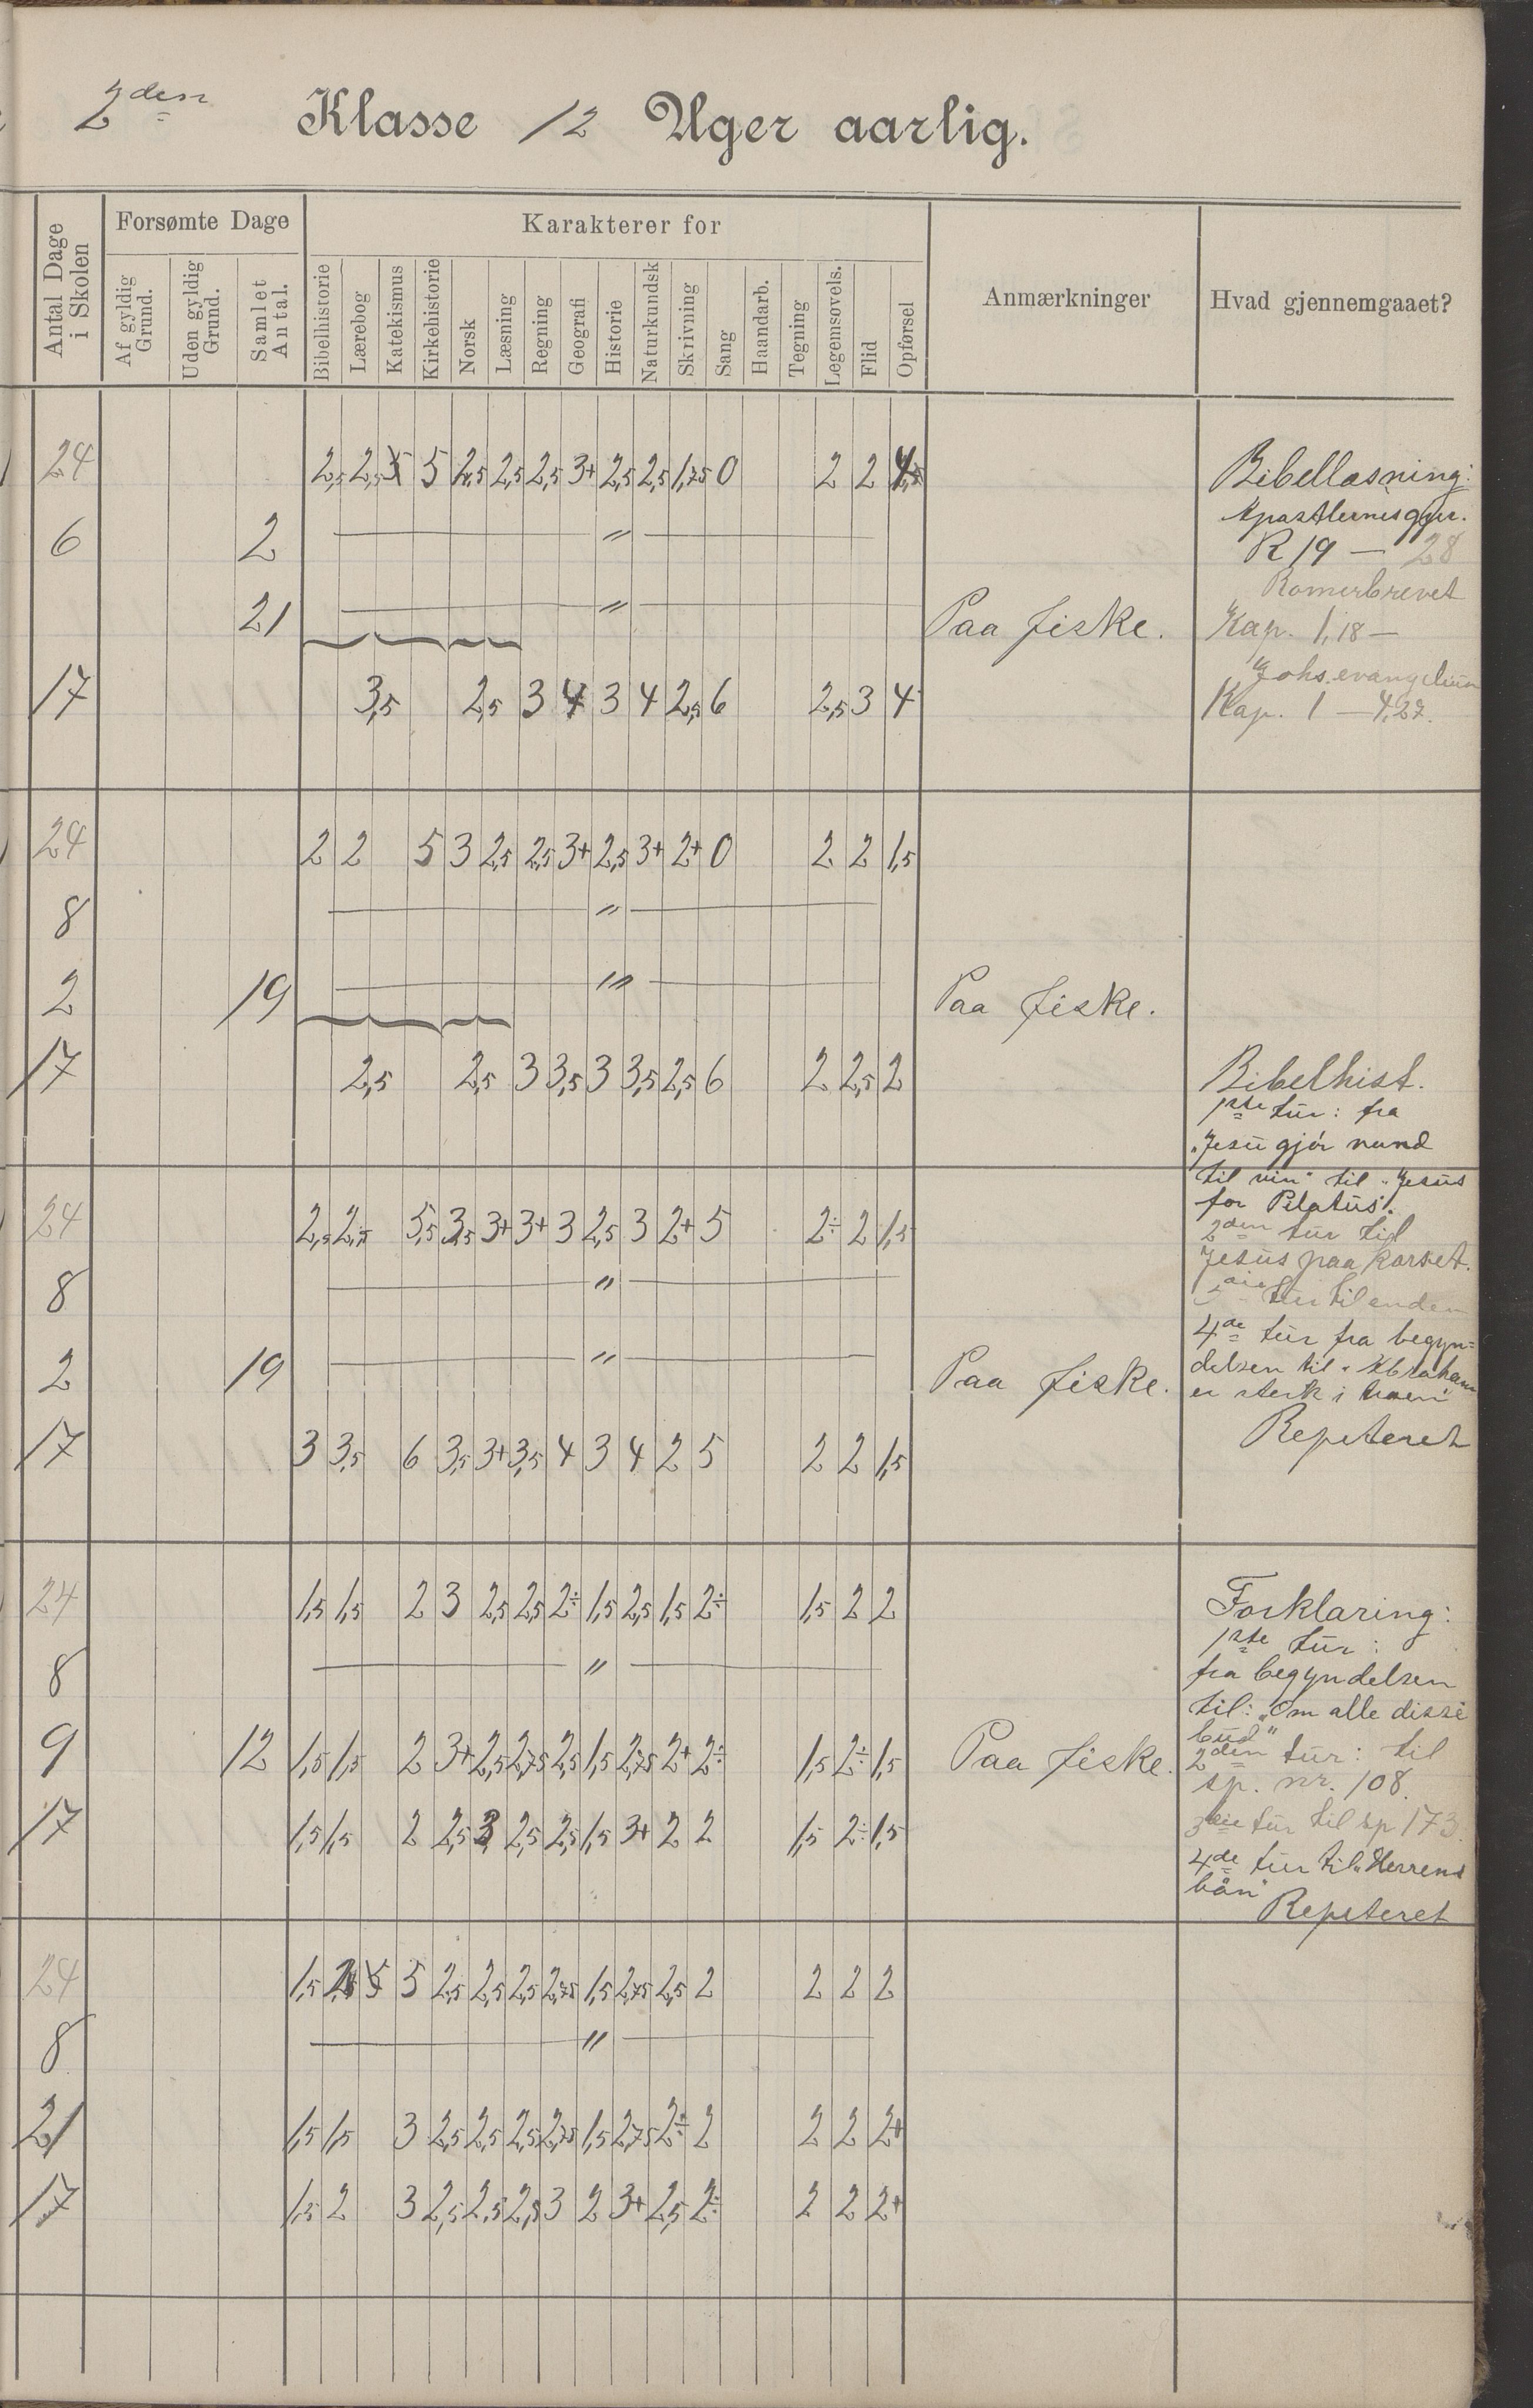 2den Klasse 12 Uger aarlig.
Antal Dage i Skolen
Forsømte Dage
Af gyldig Grund.
Uden gyldig Grund.
Samlet Antal.
Karakterer for
Bibelhistorie
Lærebog
Katekismus
Kirkehistorie
Norsk
Læsning
Regning
Geografi
Historie
Naturkundsk
Skrivning
Sang
Haandarb.
Tegning
Legemsøvels.
Flid
Opførsel
Anmærkninger
Hvad gjennemgaaet?
24 2,5 2,5 5 2,5 2,5 2,5 3+ 2,5 2,5 1,75 0 2 2
6 2 — " —
21 — " — Paa fiske.
17 3,5 2,5 3 4 3 4 2,5 6 2,5 3 4
Bibellæsning:
Apostlernesgjer.
K 19 — 28
Romerbrevet
Kap. 1,18 —
Johs. evangelium
Kap. 1 — 4,27.
24 2 2 5 3 2,5 2,5 3+ 2,5 3+ 2+ 0 2 2 1,5
8 — " —
2 19 — " — Paa fiske.
17 2,5 2,5 3 3,5 3 3,5 2,5 6 2 2,5 2
Bibelhist.
1ste tur: fra
"Jesu gjør vand
til vin" til "Jesus
for Pilatus".
2den tur til
Jesus paa korset.
tur til enden
4de tur fra begyn=
delsen til "Abraham
er sterk i troen"
Repeteret
24 2,5 2,5 5,5 3,5 3+ 3+ 3 2,5 3 2+ 5 2÷ 2 1,5
8 — " —
2 19 — " — Paa fiske.
17 3 3,5 6 3,5 3+ 3,5 4 3 4 2 5 2 2 1,5
24 1,5 1,5 2 3 2,5 2,5 2÷ 1,5 2,5 1,5 2÷ 1,5 2 2
8 — " —
9 12 1,5 1,5 2 3+ 2,5 2,75 2,5 1,5 2,75 2+ 2÷ 1,5 2÷ 1,5 Paa fiske.
17 1,5 1,5 2 2,5 3 2,5 2,5 1,5 3+ 2 2 1,5 2÷ 1,5
Forklaring:
1ste tur:
fra begyndelsen
til: "Om alle disse
bud"
2den tur: til
sp. nr. 108.
3die tur til sp 173.
4de tur til "Herrens
bøn"
Repeteret
24 1,5 5 2,5 2,5 2,5 2,75 1,5 2,75 2,5 2 2 2 2
8 — " —
21 1,5 1,5 3 2,5 2,5 2,5 2,75 1,5 2,75 2÷ 2 2 2 2+
17 1,5 2 3 2,5 2,5 2,5 3 2 3+ 2,5 2÷ 2 2 2+